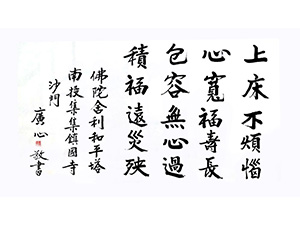 上床不煩惱
心寬福壽長
包容無心過
積福遠災殃
佛院舍利和平塔
南投集集鎮國寺
沙門
廣心
敬書